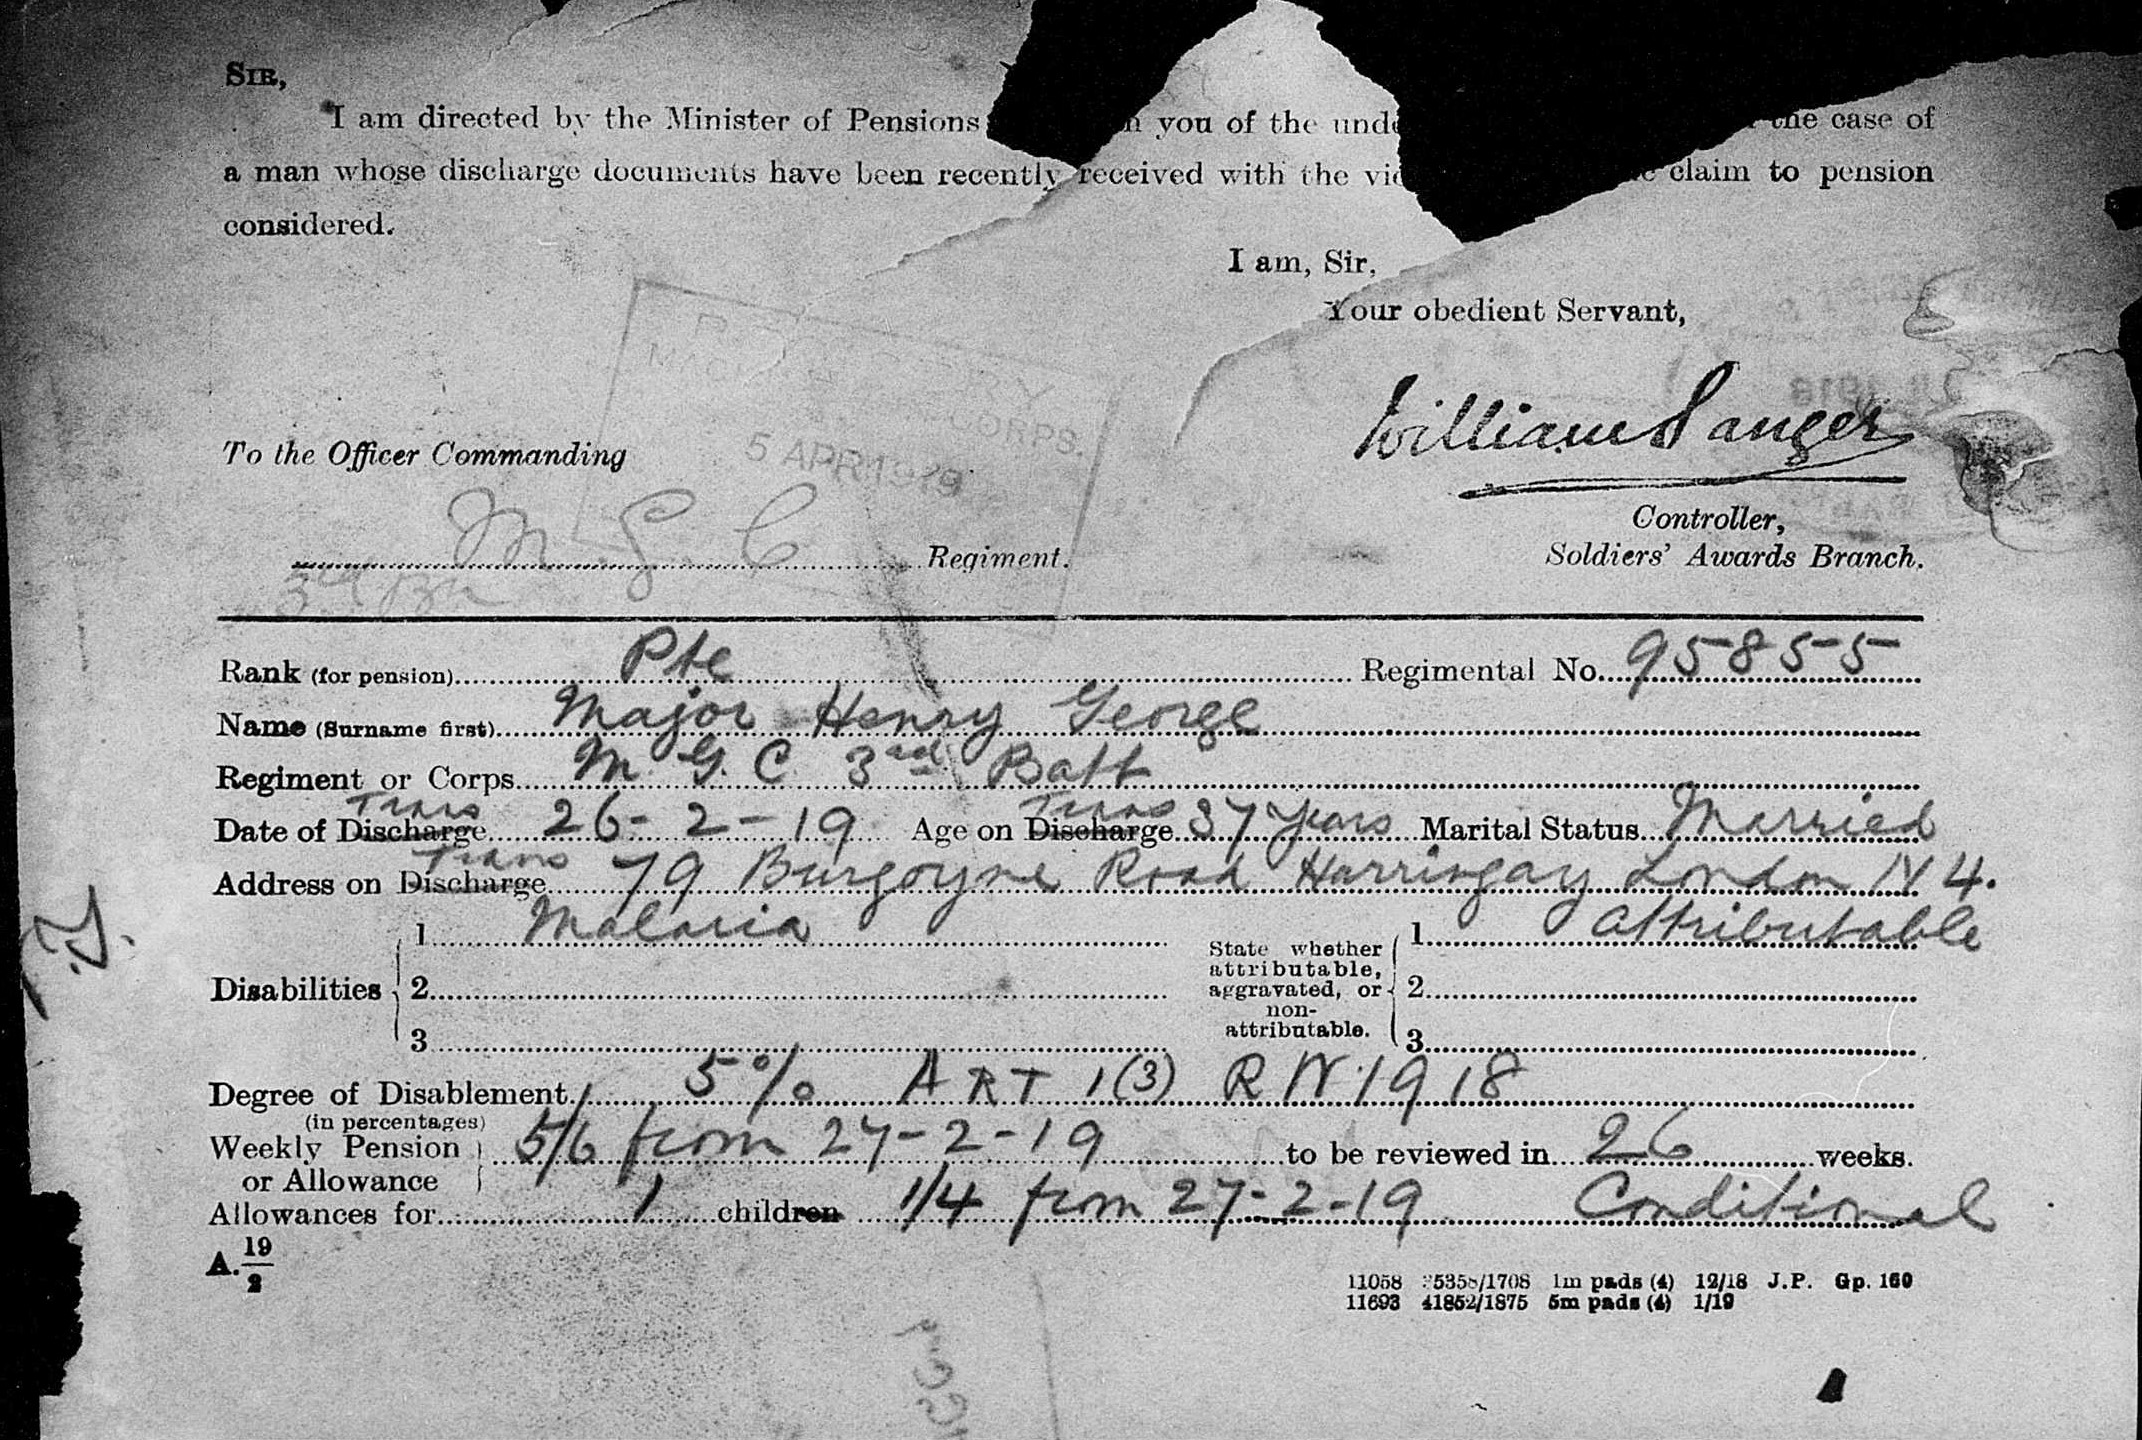 SIR,
I am directed by the Minister of Pensions you of the the case of
a man whose discharge documents have been recently received with the claim to pension
considered.
I am, Sir,
Your obedient Servant,
William Sanger
To the Officer Commanding
5 APR 1919
CORPS.
M G C Regiment.
3rd Bn
Controller,
Soldiers' Awards Branch.
Rank (for pension) Pte Regimental No. 95855
Name (Surname first) Major Henry George
Regiment or Corps M. G. C 3rd Batt
Date of Discharge Trans 26-2-19 Age on Discharge Trans 37 years Marital Status Married
Address on Discharge Trans 79 Burgoyne Road Harringay London N 4.
Disabilities 1 Malaria State whether attributable, aggravated, or non-attributable. 1 Attributable
2 2
3 3
Degree of Disablement 5% ART 1(3) RW 1918
(in percentages)
Weekly Pension or Allowance 5/6 from 27-2-19 to be reviewed in 26 weeks.
Allowances for 1 children 1/4 from 27-2-19 Conditional
A. 19/2
11058 1m pads (4) 12/18 J.P. Gp. 160
11693 41852/1875 5m pads (4) 1/19